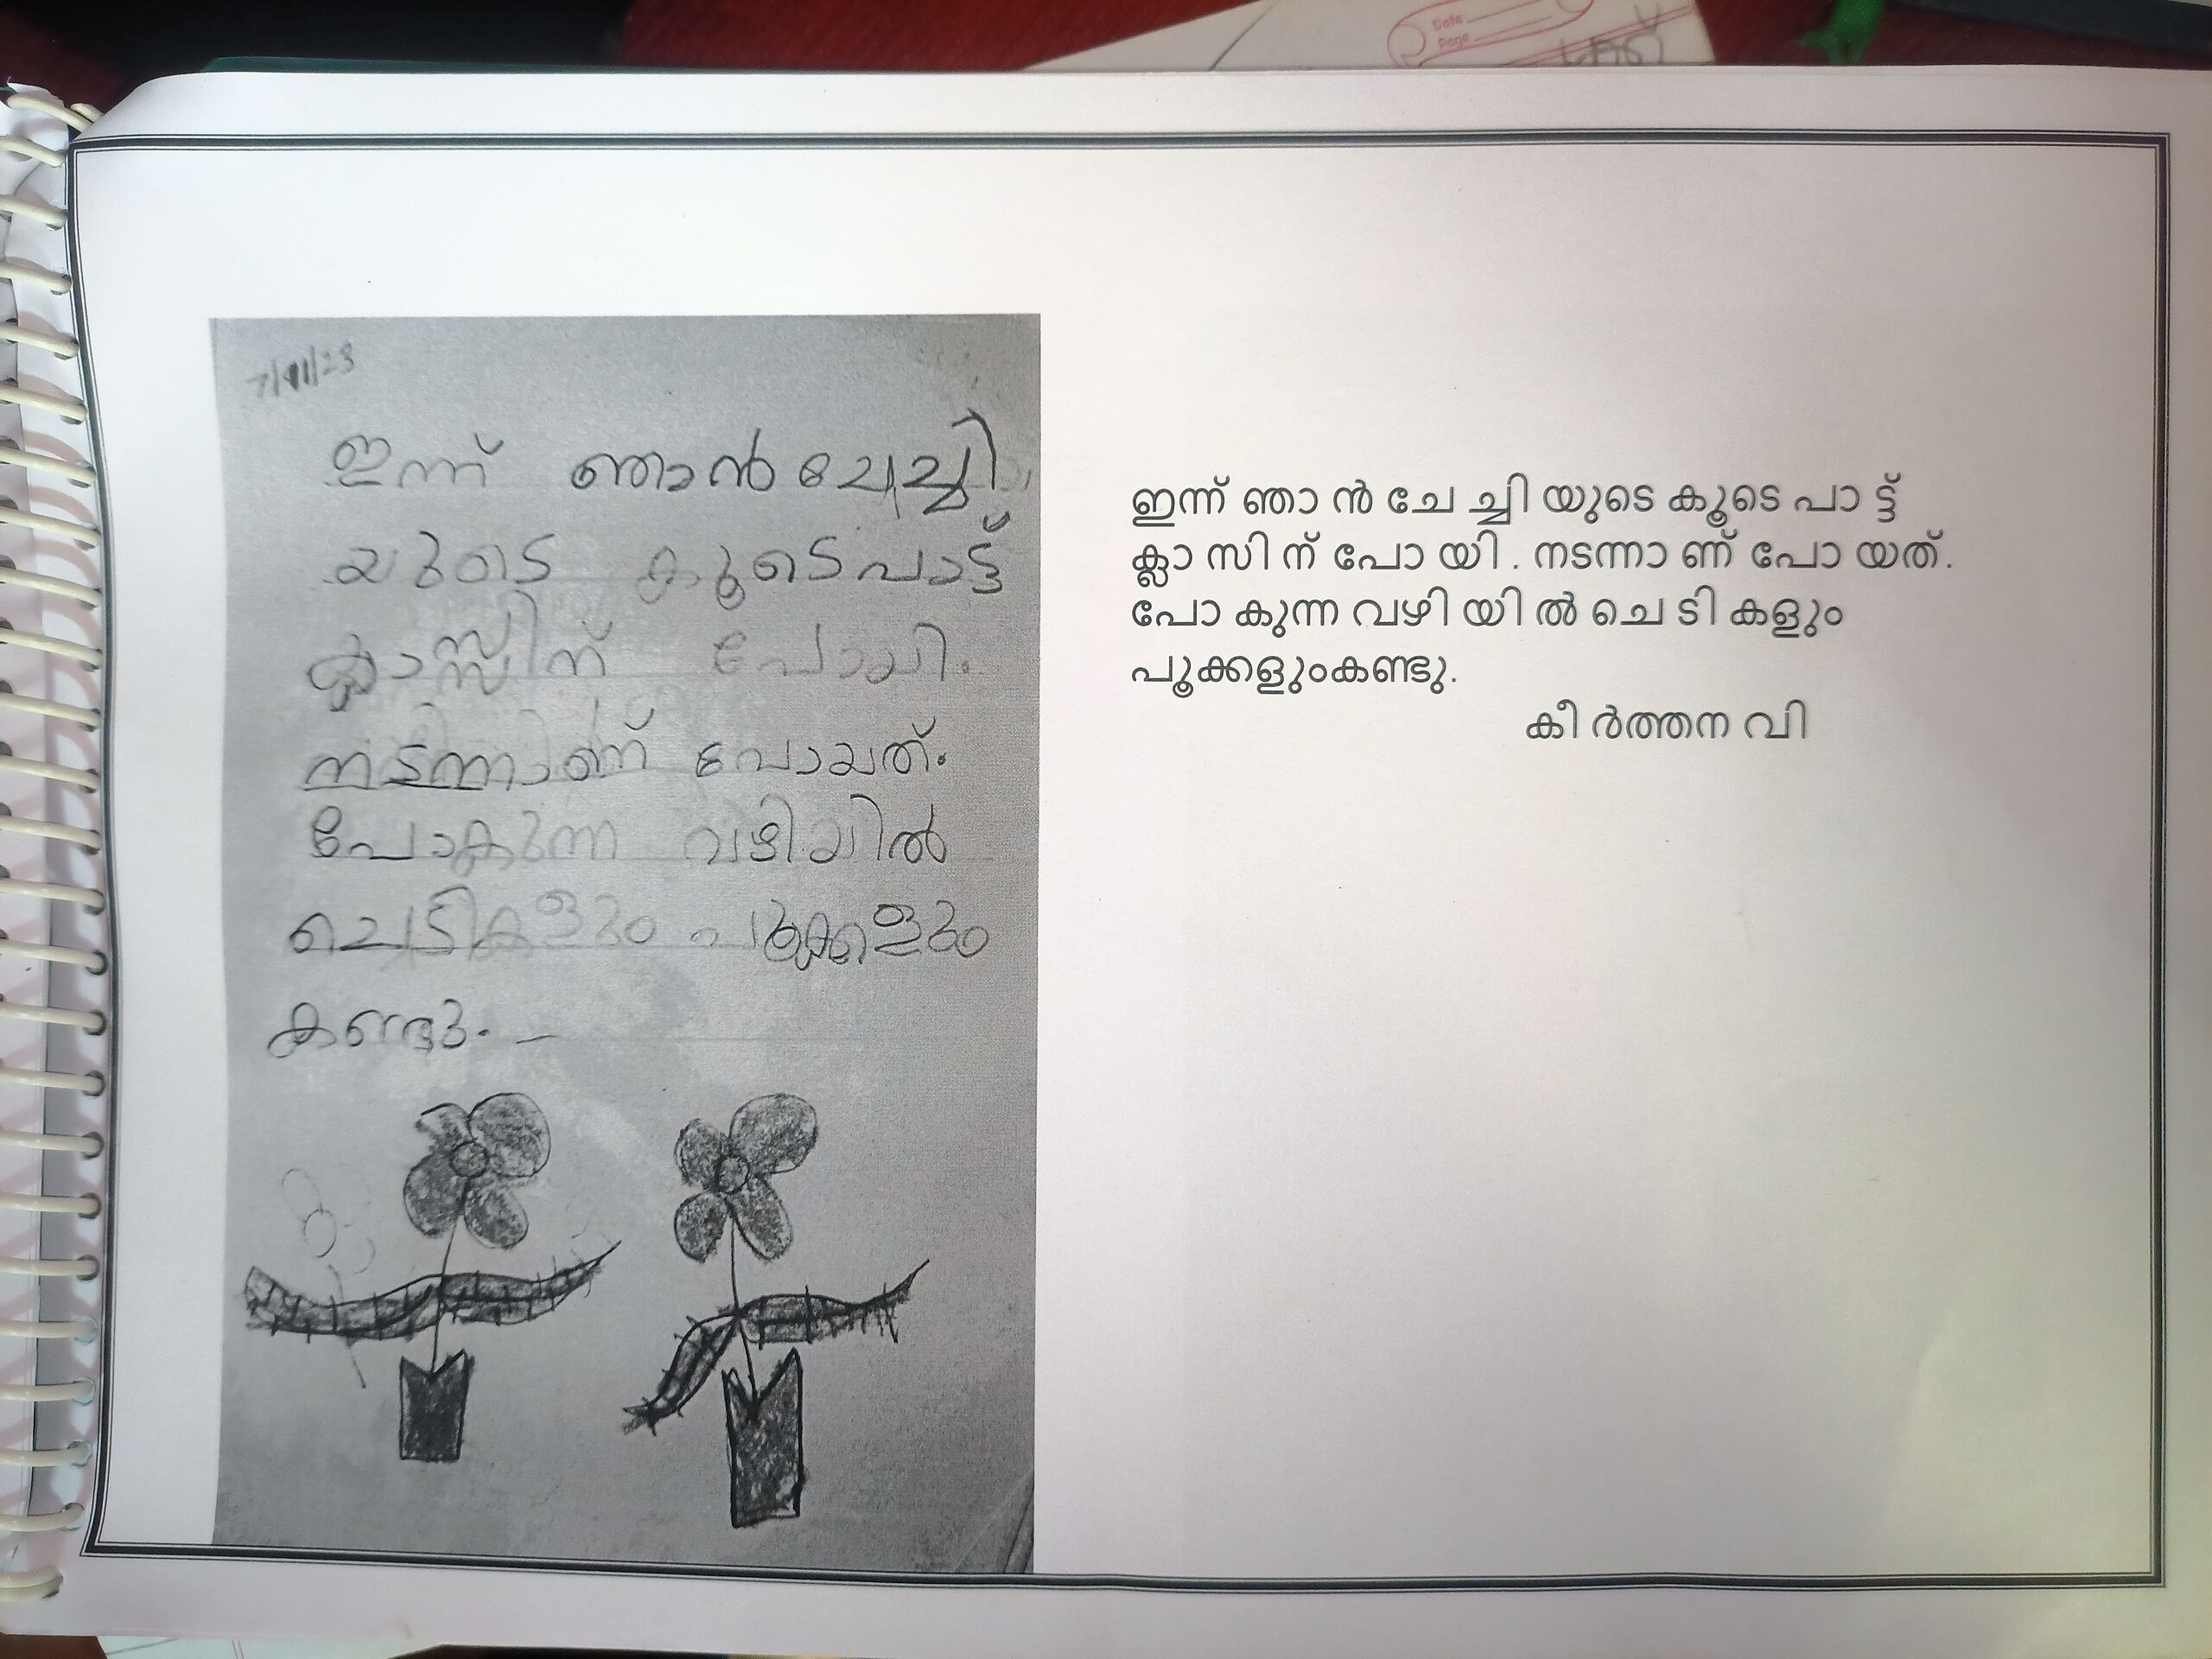 Date
Page
7/11/23
ഇന്ന് ഞാൻ ചേച്ചി
യുടെ കൂടെ പാട്ട്
ക്ലാസ്സിന് പോയി.
നടന്നാണ് പോയത്.
പോകുന്ന വഴിയിൽ
ചെടികളും പൂക്കളും
കണ്ടു.
ഇന്ന് ഞാ ൻ ചേ ച്ചി യുടെ കൂടെ പാ ട്ട്
ക്ലാ സി ന് പോ യി . നടന്നാ ണ് പോ യത്.
പോ കുന്ന വഴി യി ൽ ചെ ടി കളും
പൂക്കളുംകണ്ടു.
കീ ർത്തന വി